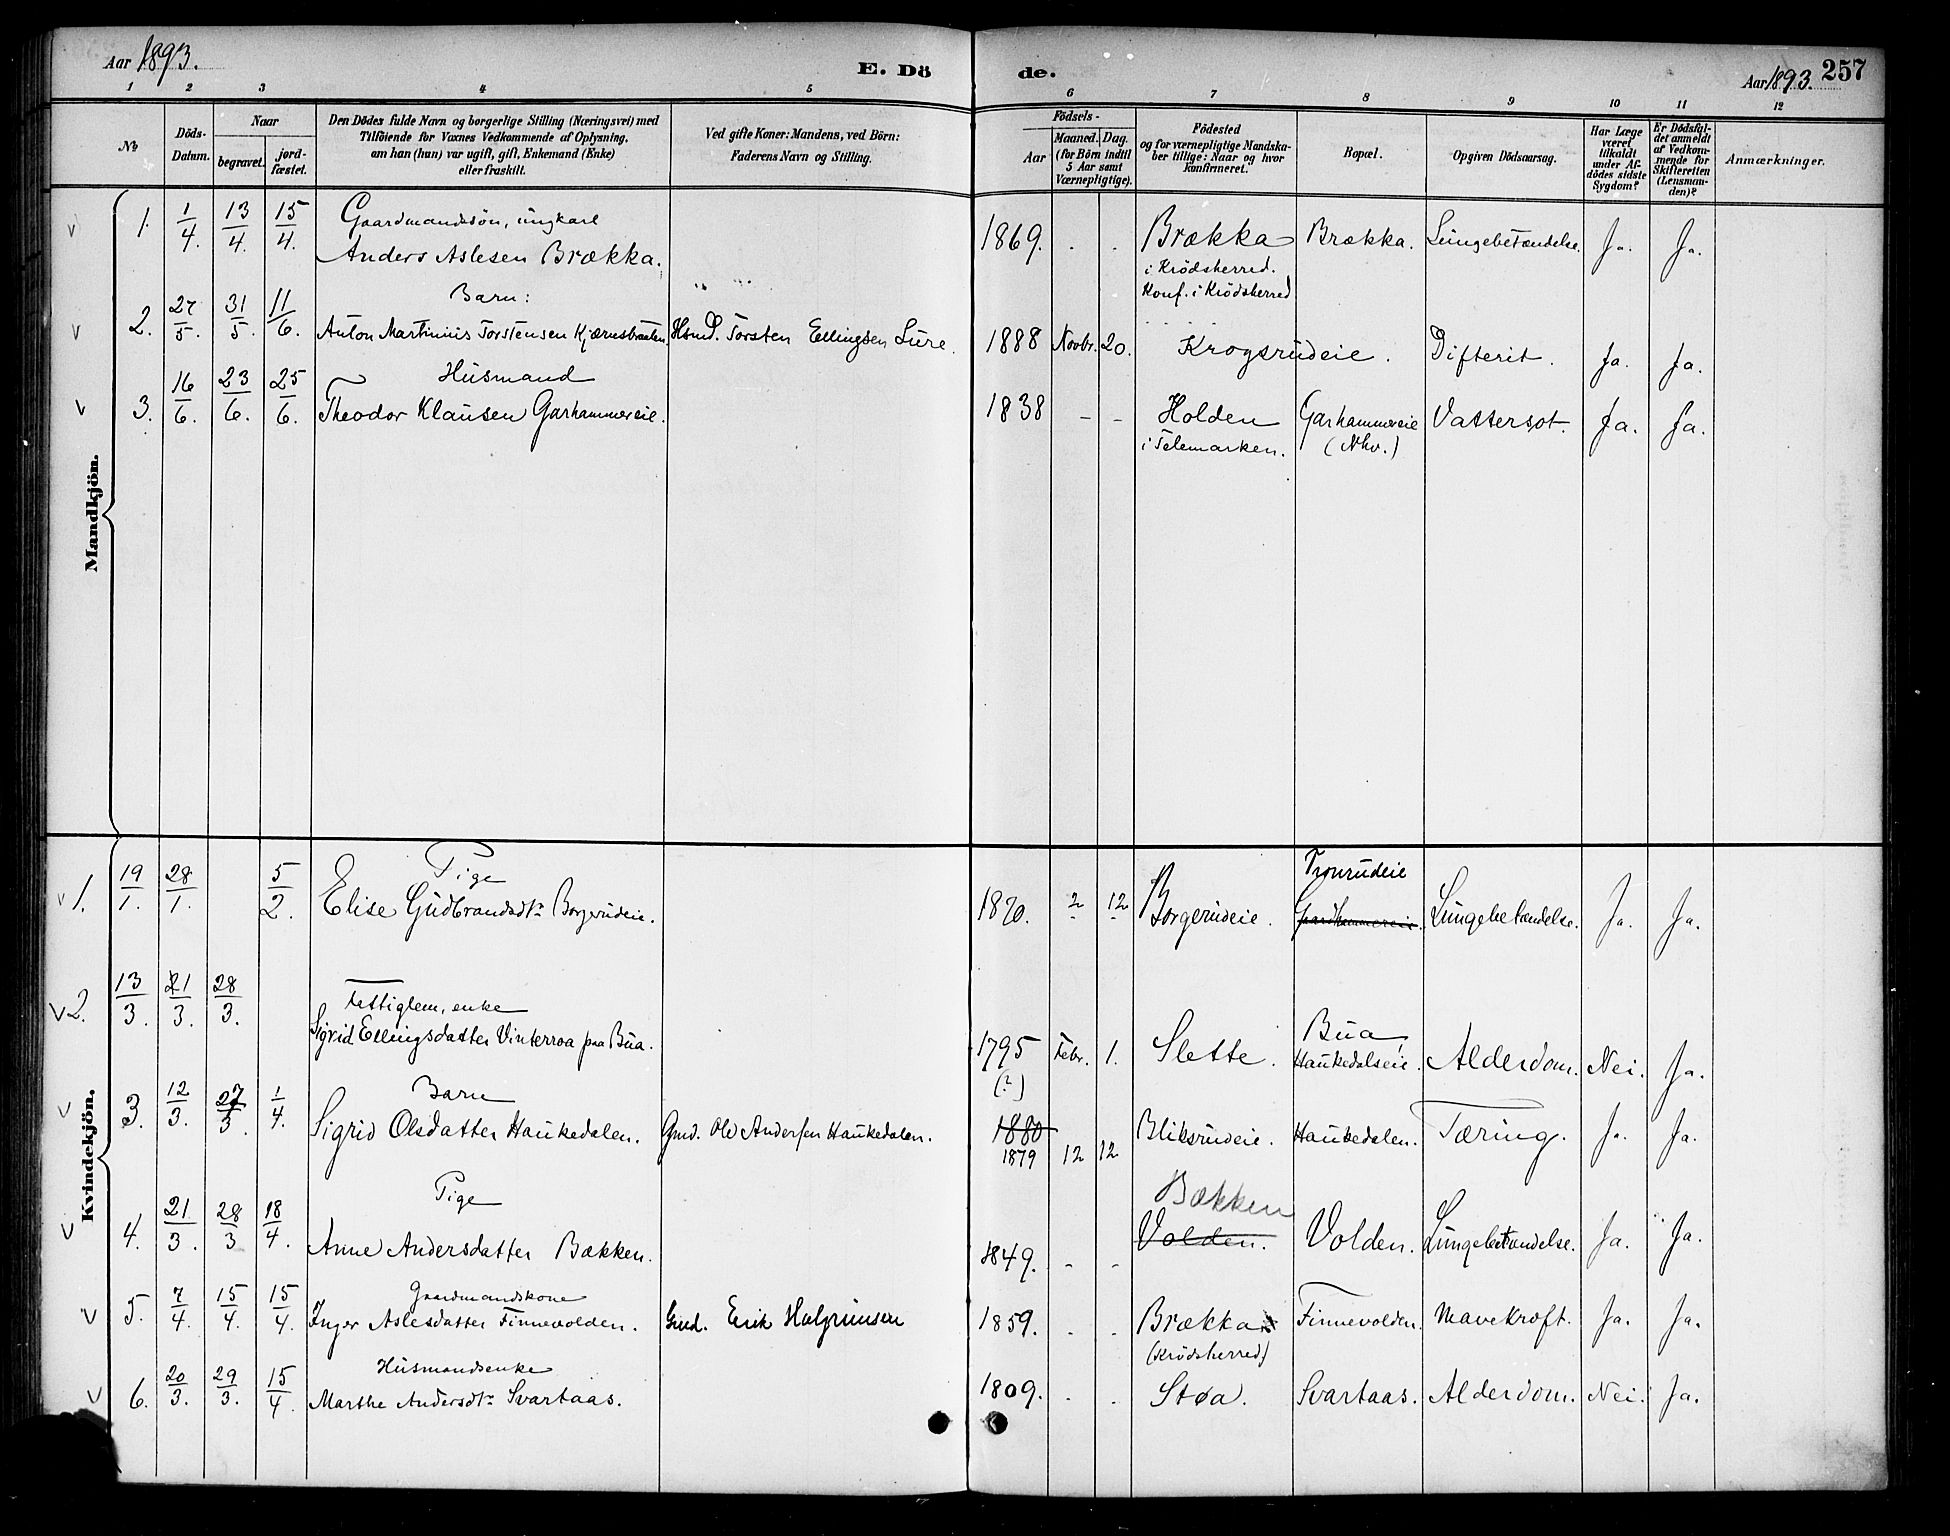 Aar 1893.
E. Dö
de.
Aar 1893. 257
1 2 3 4 5 6 7 8 9 10 11 12
No
Döds-Datum.
Naar
begravet.
jord-fæstet.
Den Dödes fulde Navn og borgerlige Stilling (Næringsvei) med
Tilföiende for Voxnes Vedkommende af Oplysning,
om han (hun) var ugift, gift, Enkemand (Enke)
eller fraskilt.
Ved gifte Koner: Mandens, ved Börn:
Faderens Navn og Stilling.
Födsels-
Aar
Maaned. Dag.
(for Börn indtil
5 Aar samt
Værnepligtige).
Födested
og for værnepligtige Mandska-
ber tillige: Naar og hvor
konfirmeret.
Bopæl.
Opgiven Dödsaarsag.
Har Læge
været
tilkaldt
under Af-
dödes sidste
Sygdom?
Er Dödsfal-
det anmeldt
af Vedkom-
mende for
Skifteretten
(Lensman-
den)?
Anmærkninger.
Mandkjön.
Gaardmandssön, ungkarl
1. 1/4. 13/4. 15/4. Anders Aslesen Brækka. 1869. . . Brækka Brækka. Lungebetændelse. Ja. Ja.
i Krödsherred.
Konf. i Krödsherred
Barn:
2. 27/5. 31/5. 11/6. Anton Martinius Torstensen Kjærnsbraaten. Hsmd. Torsten Ellingsen Lure. 1888 Novbr. 20. Krogsrudeie. Difterit. Ja. Ja.
Husmand
3. 16/6. 23/6. 25/6. Theodor Klausen Garhammereie. 1838 - - Holden Garhammereie Vattersot. Ja. Ja.
i Telemarken. (Nhv.)
Kvindekjön.
Pige Tronrudeie
1. 19/1. 28/1. 5/2. Elise Gudbrandsdtr Borgerudeie. 1870. 2 12 Borgerudeie. Gaardhammereie. Lungebetændelse. Ja. Ja.
Fattiglem, enke
2. 13/3. 21/3. 28/3. Sigrid Ellingsdatter Vinterroa paa Bua. 1795 Febr. 1. Slette. Bua, Alderdom. Nei. Ja.
(?) Haukedalseie.
Barn
3. 12/3. 27/3. 1/4. Sigrid Olsdatter Haukedalen. Gmd. Ole Andersen Haukedalen. 1880 Bliksrudeie. Haukedalen. Tæring. Ja. Ja.
1879 12 12
Pige Bækken
4. 21/3. 28/3 18/4. Anne Andersdatter Bækken. 1849. - - Volden. Volden. Lungebetændelse. Ja. Ja.
Gaardmandskone
5. 7/4. 15/4. 15/4. Inger Aslesdatter Finnevolden. Gmd. Erik Halgrimsen 1859. . . Brækka Finnevolden. Mavekræft. Ja. Ja.
(Krödsherred)
Husmandsenke
6. 20/3. 29/3. 15/4. Marthe Andersdtr Svartaas. 1809. . . Støa. Svartaas. Alderdom. Nei. Ja.